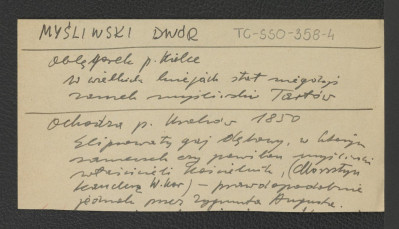 MYŚLIWSKI DWÓR TG-550-358-4
Oblęgorek p. Kielce
W wielkich kniejach stał niegdyś
zamek myśliwski Tarłów
Ochodza p. Kraków 1850
Eliptowaty gaj dębowy, w którym
zameczek czy pawilon myśliwski
właścicieli Kościelnik, (Morsztyn
Wikar) – prawdopodobnie
jednak przez Zygmunta Augusta.